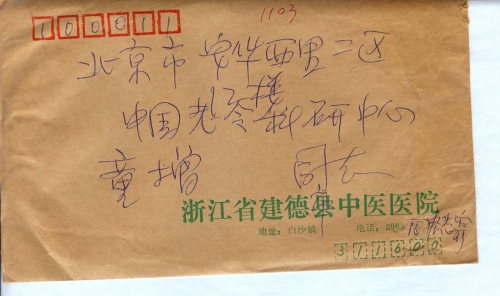 1103
100011
北京市安华西里二区
中国老令科研中心
童增 同志
浙江省建德县中医医院
市
地址：白沙镇 电话：
311600